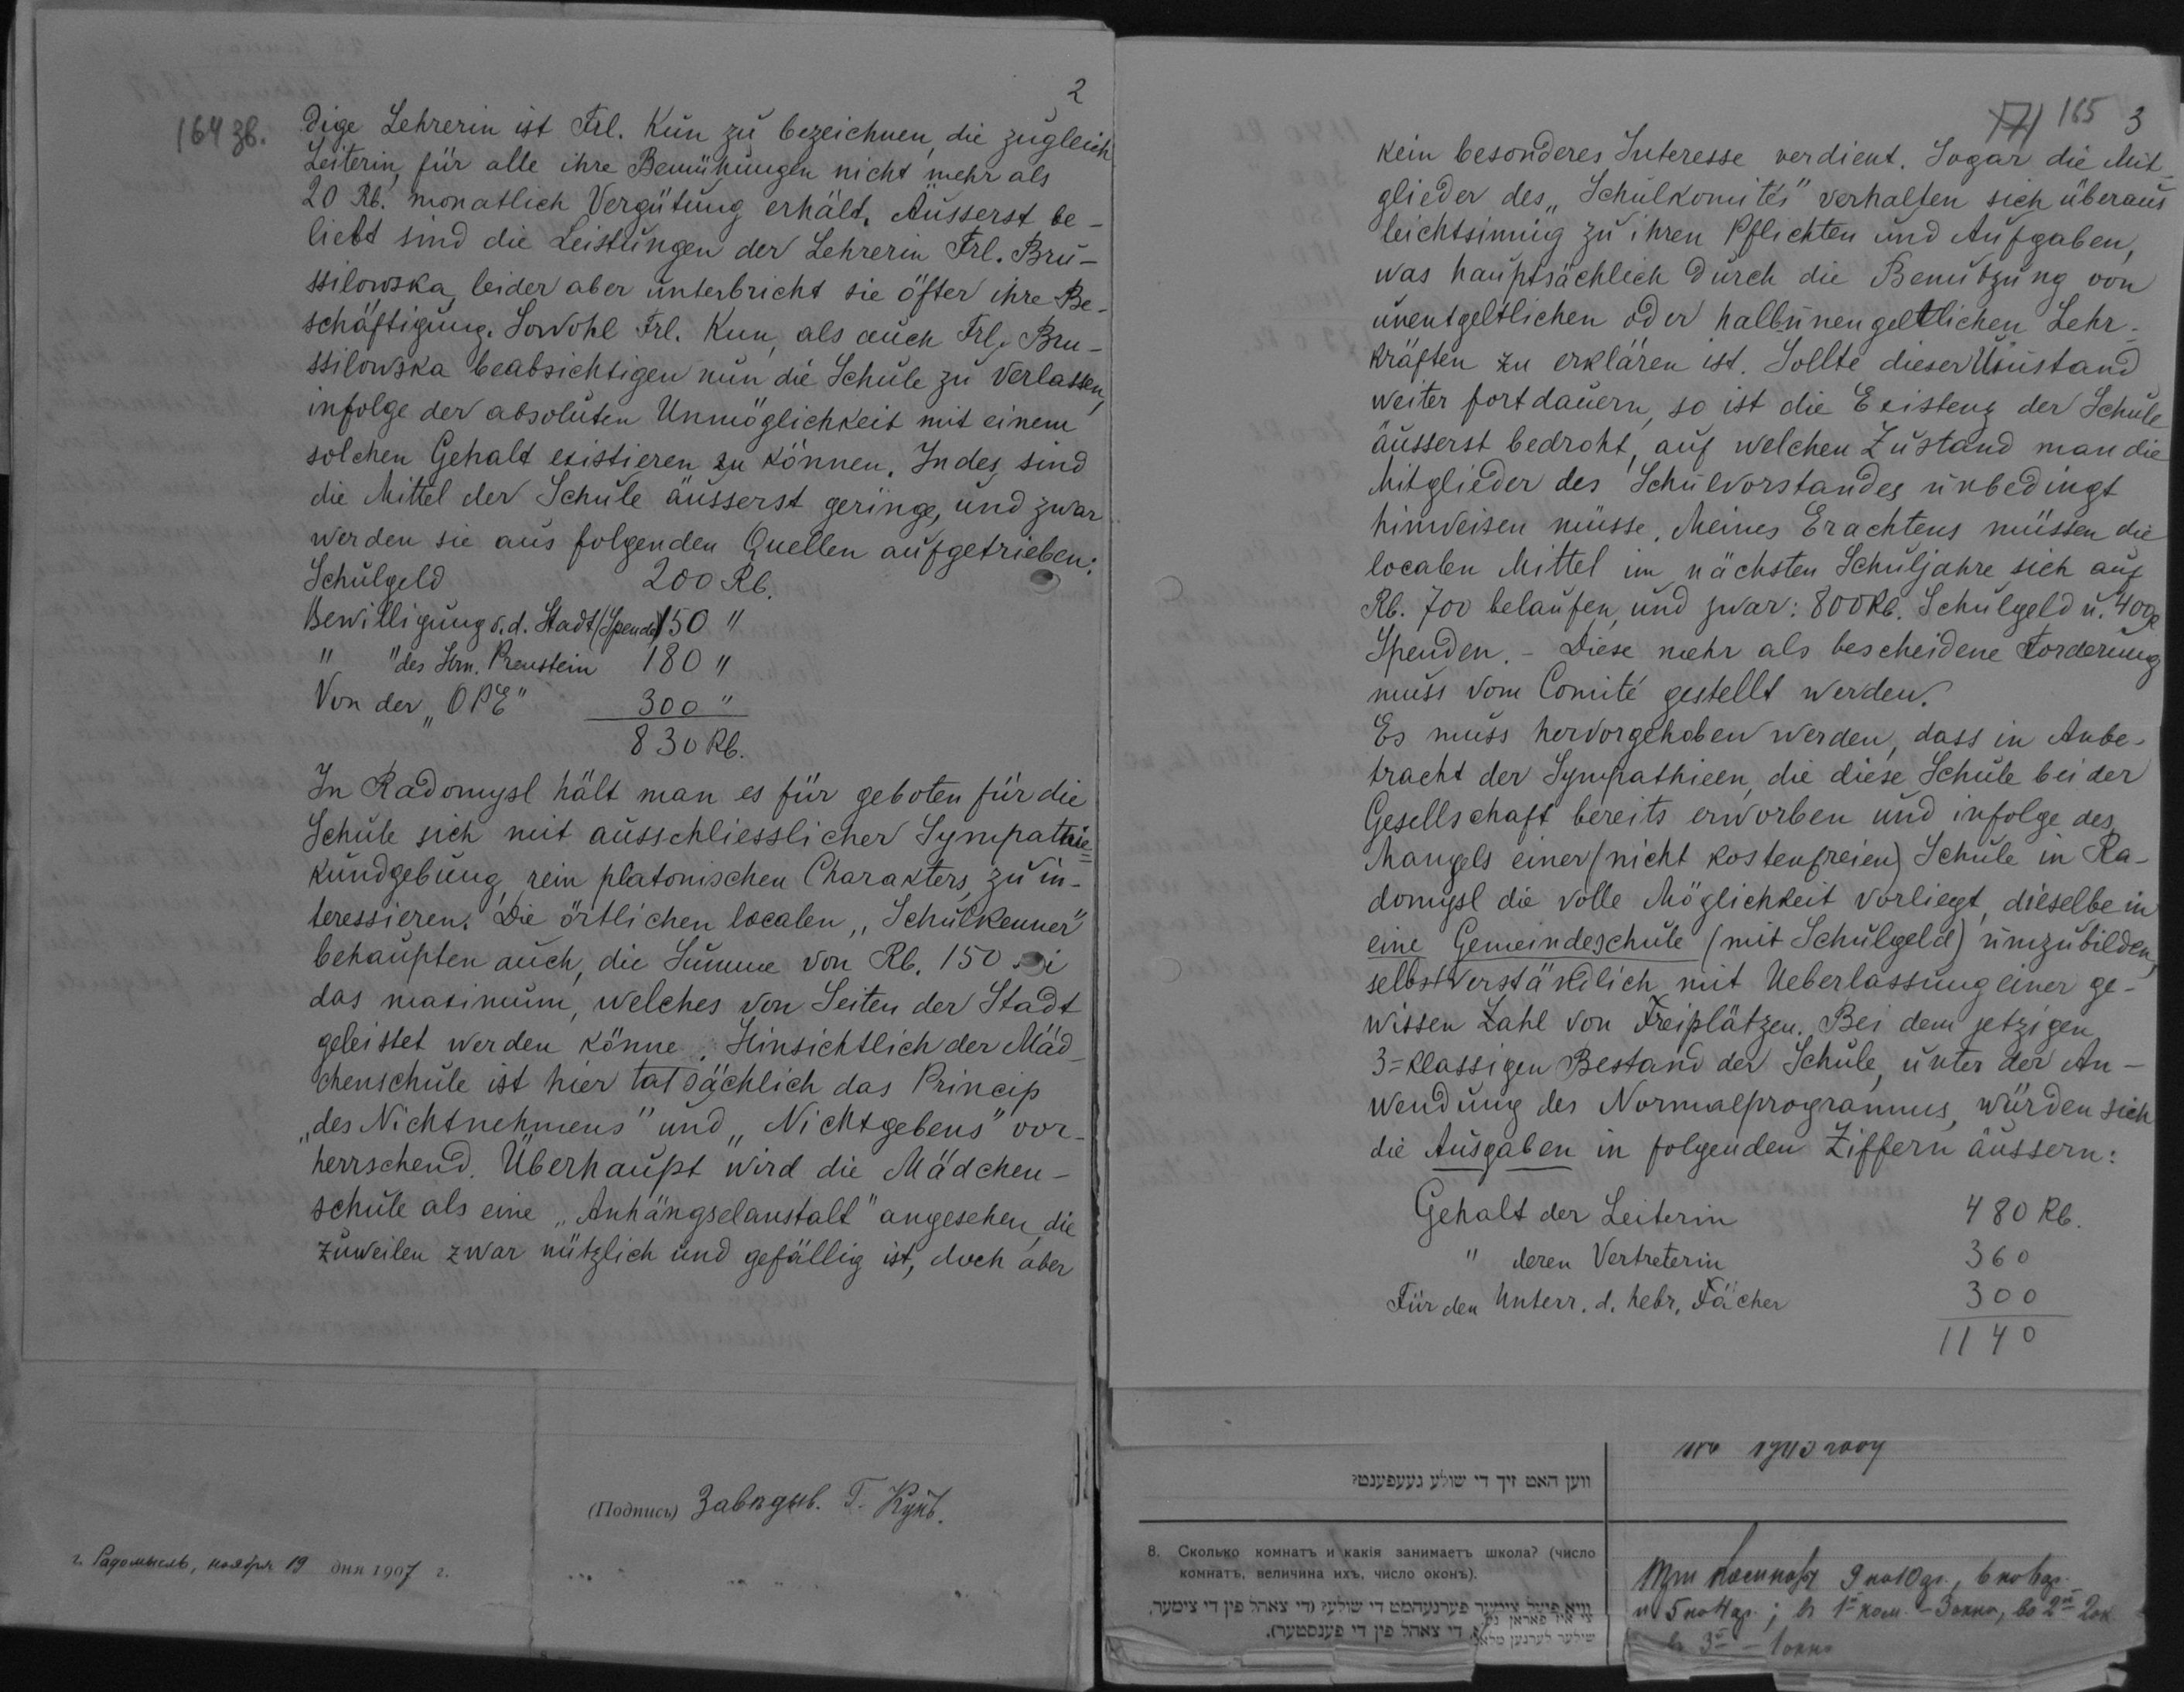 2
164 зв.
dige Lehrerin ist Frl. Kun zu bezeichnen, die zugleich
Leiterin, für alle ihre Bemühungen nicht mehr als
20 Rb. monatlich Vergütung erhält. Äusserst be-
liebt sind die Leistungen der Lehrerin Frl. Bru-
ssilowska, leider aber unterbricht sie öfter ihre Be-
schäftigung. Sowohl Frl. Kun, als auch Frl. Bru-
ssilowska beabsichtigen nun die Schule zu verlassen,
infolge der absoluten Unmöglichkeit mit einem
solchen Gehalt existieren zu können. Indes sind
die Mittel der Schule äusserst geringe, und zwar
werden sie aus folgenden Quellen aufgetrieben:
Schulgeld 200 Rb.
Bewilligung v. d. Stadt (Spende) 150 "
" " des Hrn. Prenstein 180 "
Von der „OPE" 300 "
830 Rb.
In Radomysl hält man es für geboten für die
Schule sich mit ausschliesslicher Sympathie=
kundgebung, rein platonischen Charakters, zu in-
teressieren. Die örtlichen localen „Schulkenner"
behaupten auch, die Summe von Rb. 150 sei
das maximum, welches von Seiten der Stadt
geleistet werden könne. Hinsichtlich der Mäd-
chenschule ist hier tatsächlich das Princip
„des Nichtnehmens" und „Nichtgebens" vor-
herrschend. Überhaupt wird die Mädchen-
schule als eine „Anhängselanstalt" angesehen, die
zuweilen zwar nützlich und gefällig ist, doch aber
(Подпись) Завѣдыв. Г. Кунъ.
г. Радомысль, ноября 19 дня 1907 г.
165 3
kein besonderes Interesse verdient. Sogar die Mit-
glieder des „Schulkomités" verhalten sich überaus
leichtsinnig zu ihren Pflichten und Aufgaben,
was hauptsächlich durch die Benutzung von
unentgeltlichen oder halbunengeltlichen Lehr-
kräften zu erklären ist. Sollte dieser Umstand
weiter fortdauern, so ist die Existenz der Schule
äusserst bedroht, auf welchen Zustand man die
Mitglieder des Schulvorstandes unbedingt
hinweisen müsse. Meines Erachtens müssen die
localen Mittel im nächsten Schuljahre sich auf
Rb. 700 belaufen, und zwar: 800 Rb. Schulgeld u. 400 R
Spenden. - Diese mehr als bescheidene Forderung
muss vom Comité gestellt werden.
Es muss hervorgehoben werden, dass in Anbe-
tracht der Sympathieen, die diese Schule bei der
Gesellschaft bereits erworben und infolge des
Mangels einer (nicht kostenfreien) Schule in Ra-
domysl die volle Möglichkeit vorliegt, dieselbe in
eine Gemeindeschule (mit Schulgeld) umzubilden,
selbstverständlich mit Ueberlassung einer ge-
wissen Zahl von Freiplätzen. Bei dem jetzigen
3=klassigen Bestand der Schule, unter der An-
wendung des Normalprogramms, würden sich
die Ausgaben in folgenden Ziffern äussern:
Gehalt der Leiterin 480 Rb.
" deren Vertreterin 360
Für den Unterr. d. hebr. Fächer 300
1140
ווען האט זיך די שולע געעפענט?
8. Сколько комнатъ и какія занимаетъ школа? (число
комнатъ, величина ихъ, число оконъ).
וויא פיעל צימער פערנעהמט די שולע? (די צאהל פון די צימער,
די צאהל פון די פענסטער).
Три комнаты 9 на 10 ар., 6 на 6 ар.
и 5 на 4 ар.; въ 1й ком. - 3 окна, во 2й 2 ок.
въ 3й - 1 окно